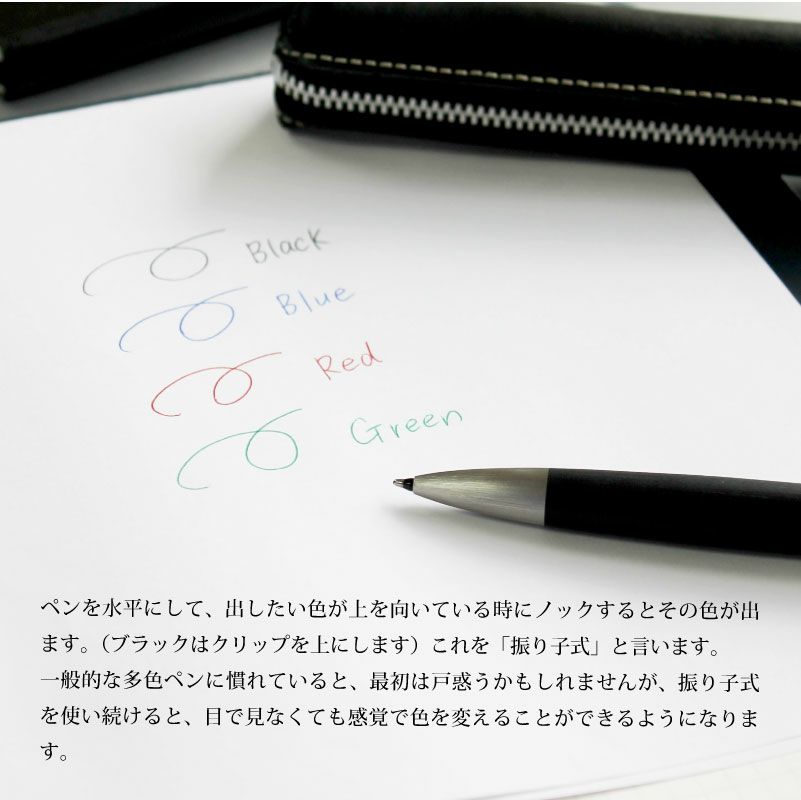 Black
Blue
Red
Green
ペンを水平にして、出したい色が上を向いている時にノックするとその色が出
ます。（ブラックはクリップを上にします）これを「振り子式」と言います。
一般的な多色ペンに慣れていると、最初は戸惑うかもしれませんが、振り子式
を使い続けると、目で見なくても感覚で色を変えることができるようになりま
す。